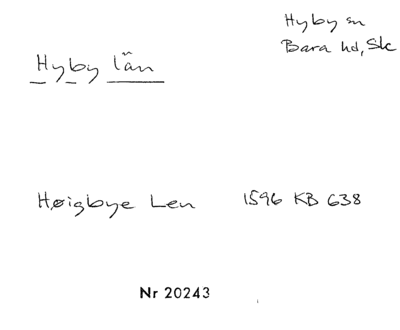 Hyby sn
Bara hd, Sk
Hyby län
Høigbye Len 1596 KB 638
Nr 20243